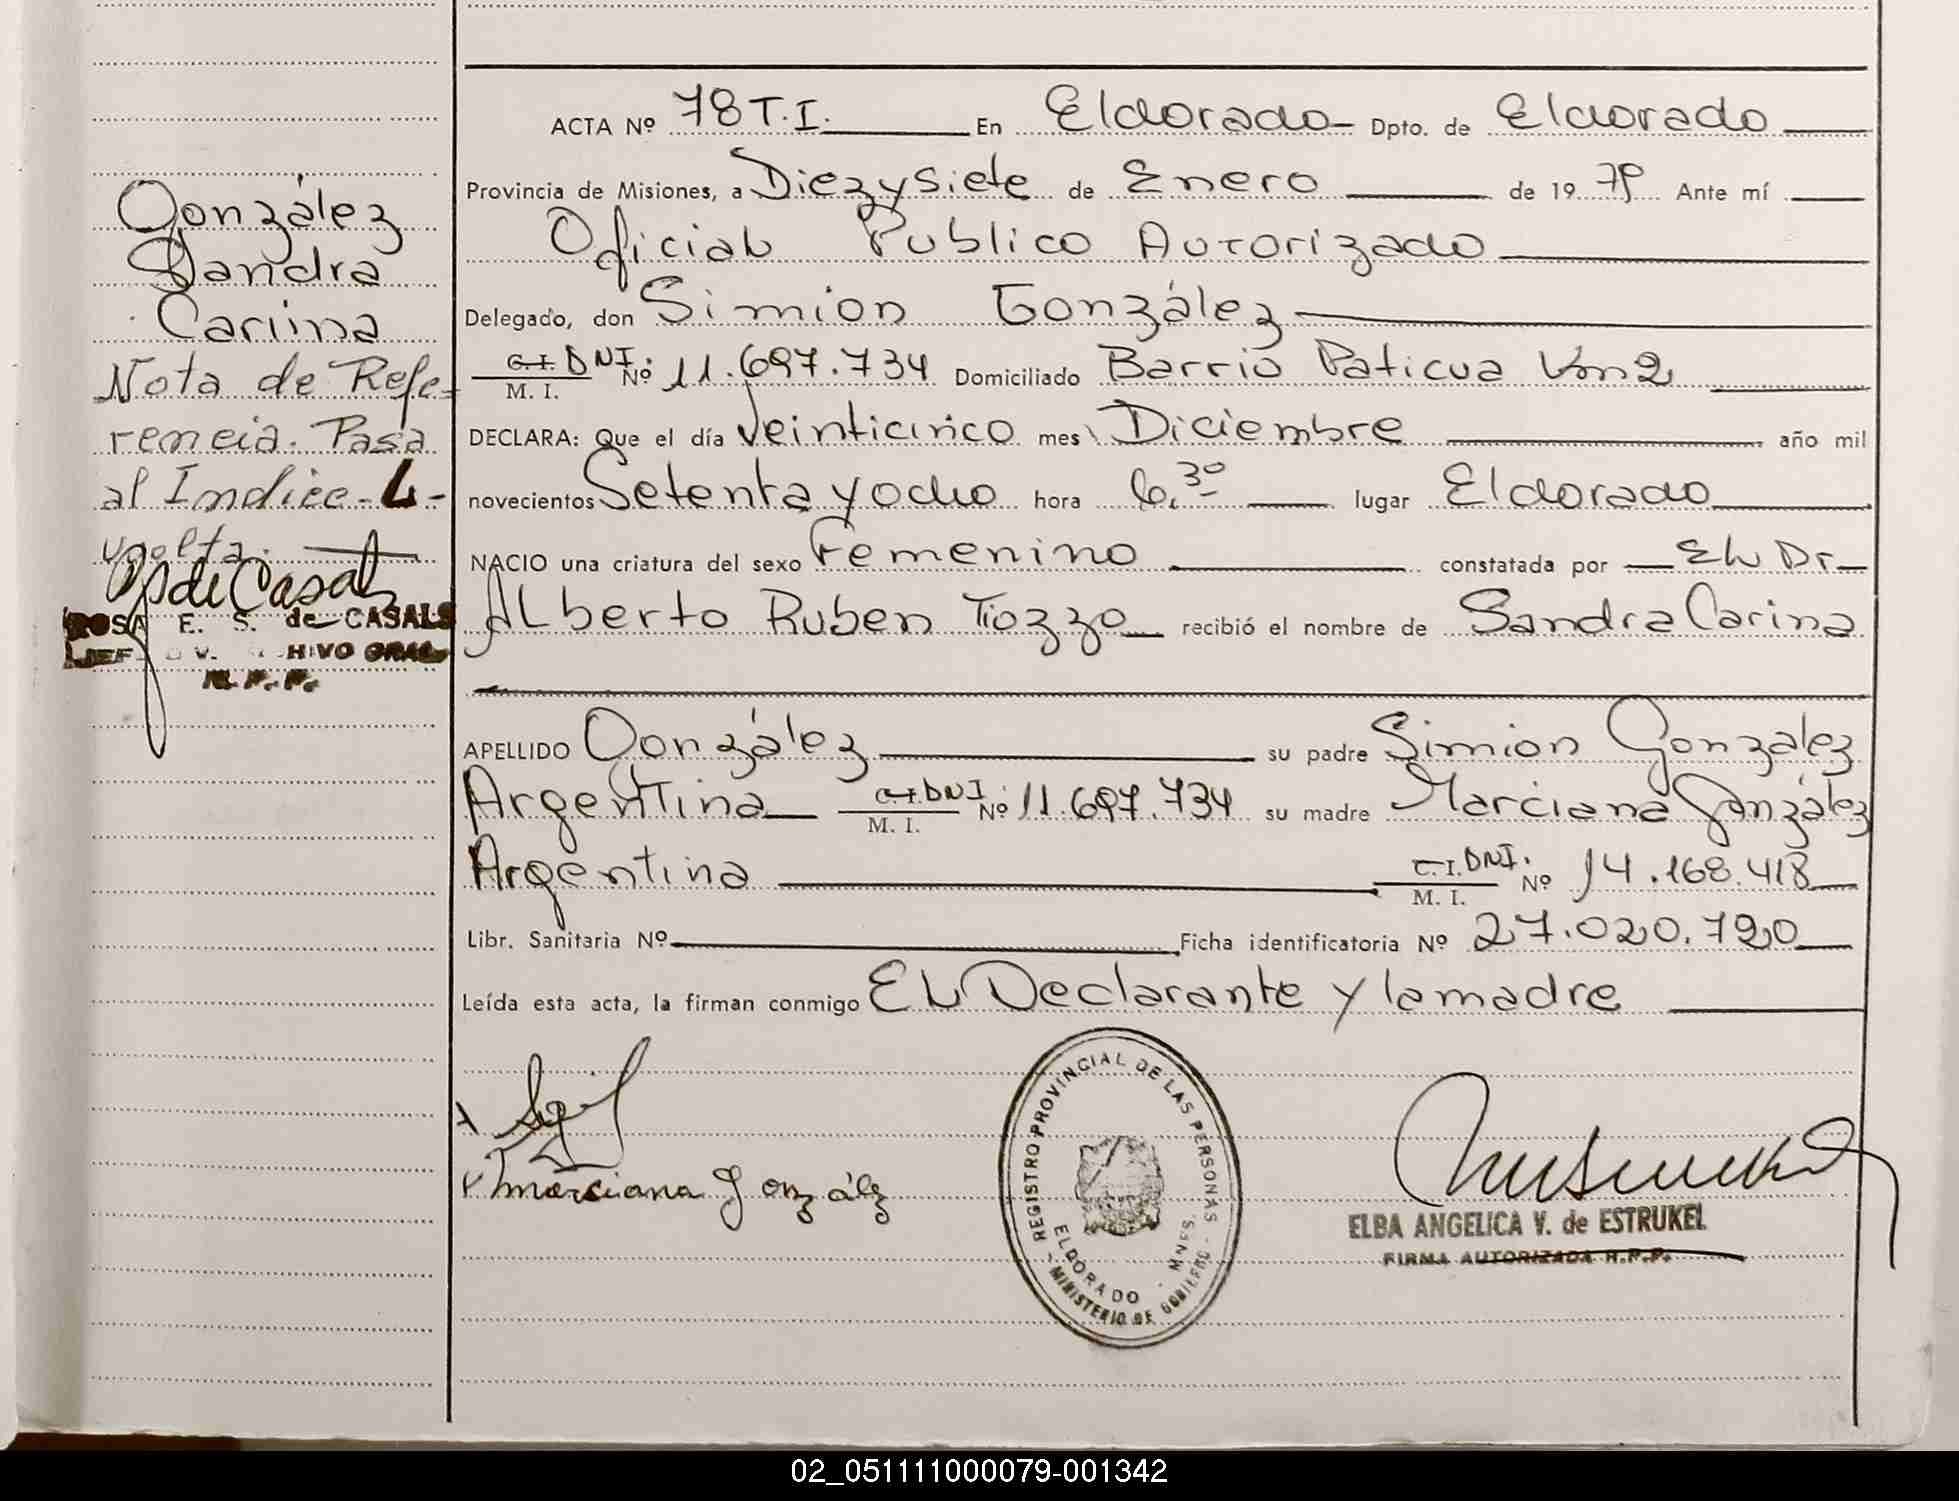 ACTA Nº 78 T.I. En Eldorado Dpto. de Eldorado
Provincia de Misiones, a Diezysiete de Enero de 1979 Ante mí
Oficial Publico Autorizado
Delegado, don Simion González
C.I. DNI. M. I. Nº 11.697.734 Domiciliado Barrio Paticua Km2
DECLARA: Que el día Veinticinco mes Diciembre año mil
novecientos Setenta y ocho hora 6,30 lugar Eldorado
NACIO una criatura del sexo Femenino constatada por El Dr
Alberto Ruben Tiozzo recibió el nombre de Sandra Carina
APELLIDO González su padre Simion González
Argentina C.I. DNI. M. I. Nº 11.697.734 su madre Marciana González
Argentina C.I. DNI. M. I. Nº 14.168.418
Libr. Sanitaria Nº Ficha identificatoria Nº 27.020.720
Leída esta acta, la firman conmigo El Declarante y la madre
González
Sandra
Carina
Nota de Refe-
rencia. Pasa
al Indice-L-
vuelta.
ROSA E. S. de CASALS
HIVO GRAL
R. P. P.
marciana González
REGISTRO PROVINCIAL DE LAS PERSONAS
ELDORADO - MNES.
MINISTERIO DE GOBIERNO
ELBA ANGELICA V. de ESTRUKEL
FIRMA AUTORIZADA R.P.P.
02_051111000079-001342